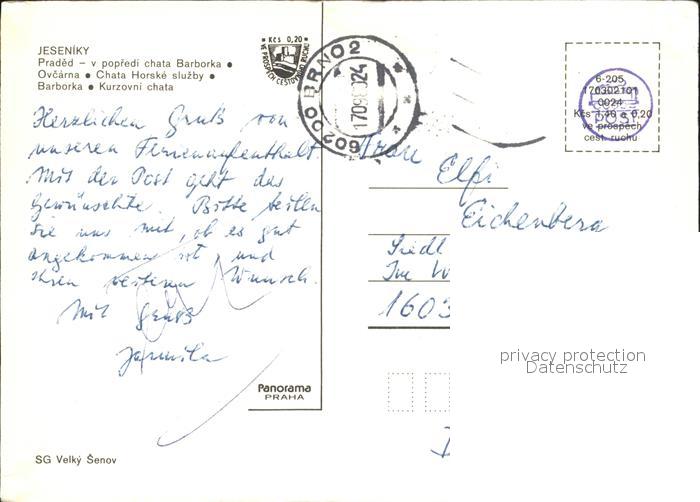 JESENÍKY
Praděd – v popředí chata Barborka •
Ovčárna • Chata Horské služby •
Barborka • Kurzovní chata
Kčs 0,20
VE PROSPĚCH CESTOVNÍHO RUCHU
60200 BRNO 2
6-205
170302101
0024
Kčs 1,40 + 0,20
ve prospěch
cest. ruchu
POST
Herzlichen Gruß von
unseren Ferienaufenthalt.
Mit der Post geht das
Gewünschte. Bitte teilen
Sie uns mit, ob es gut
angekommen ist, und
Ihren weiteren Wunsch.
Mit Gruß
Jarmila
Frau
Elfi
Eichenberg
Siedl
Im W
1603
privacy protection
Datenschutz
Panorama
PRAHA
SG Velký Šenov